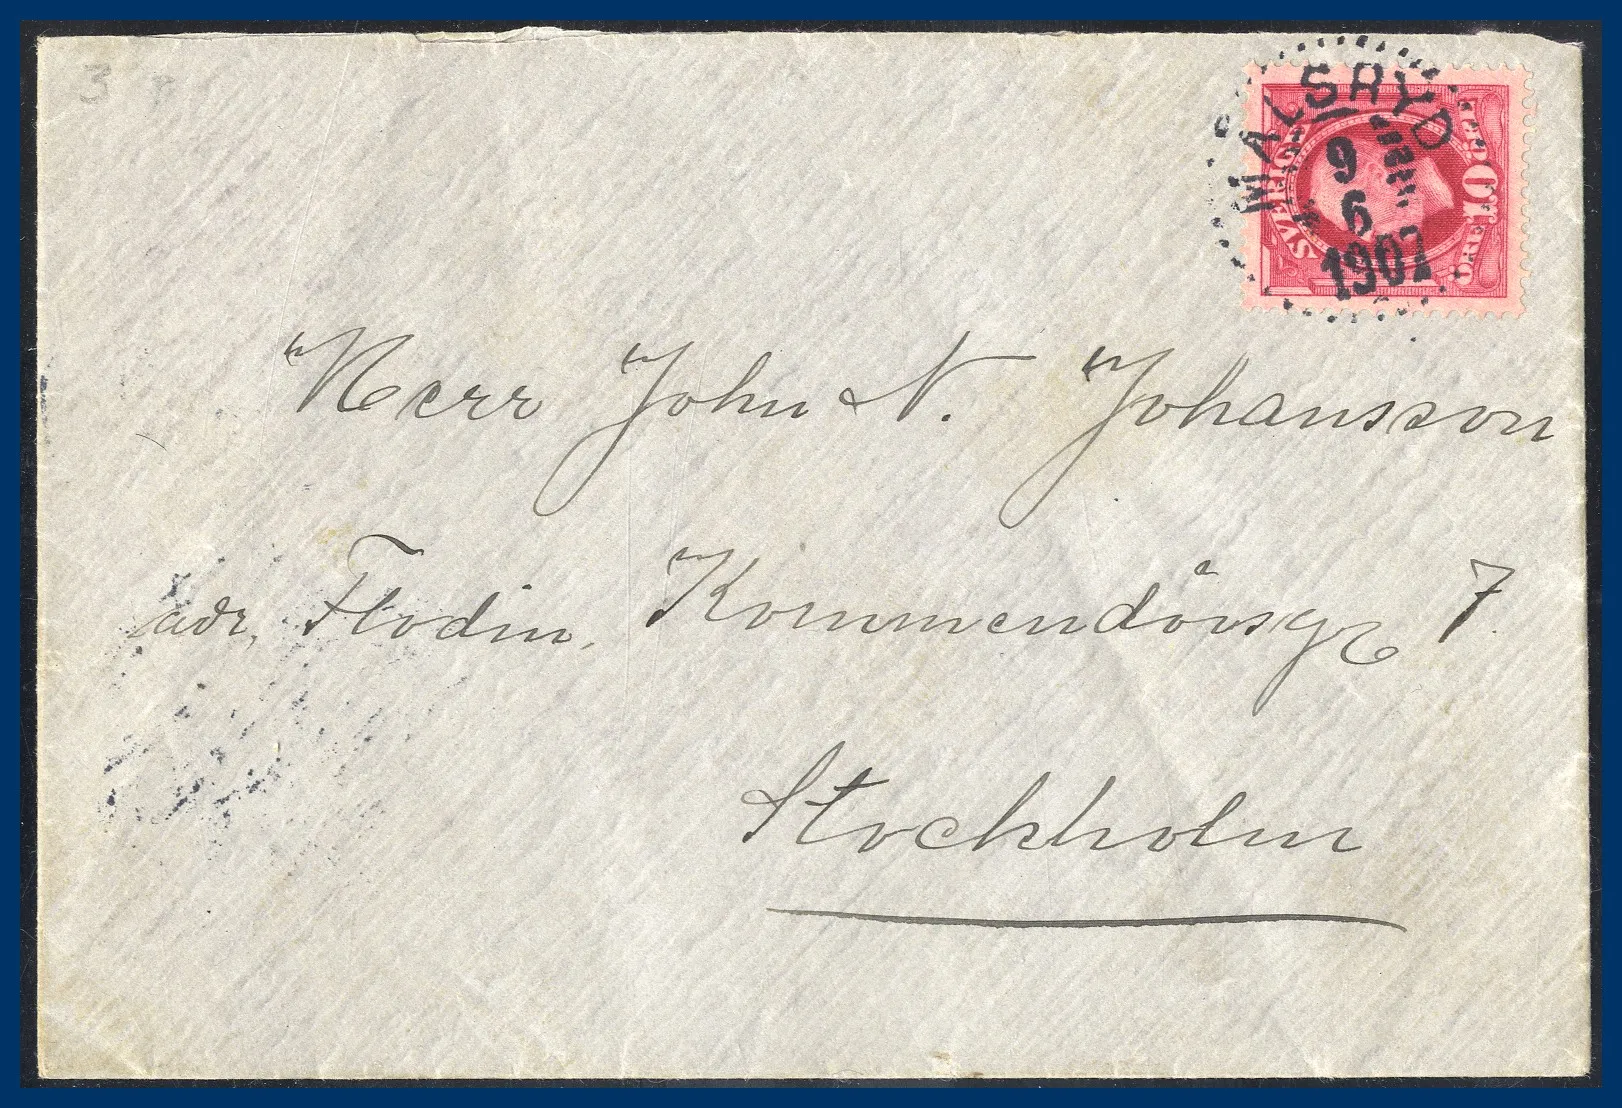 3
MALSRYD
9
6
1907
SVERIGE
10
ÖRE
Herr John N. Johansson
adr. Flodin, Kommendörsg. 7.
Stockholm